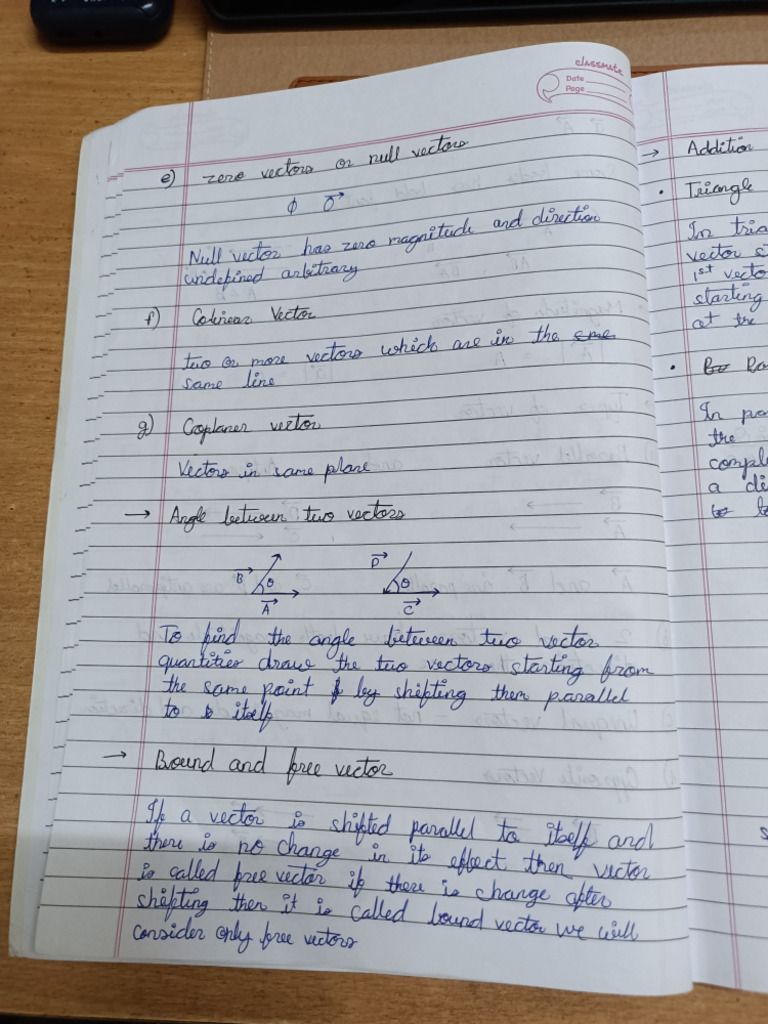 classmate
Date
Page
e) zero vectors or null vectors
ϕ 0⃗
Null vector has zero magnitude and direction
undefined arbitrary
f) Colinear Vector
two or more vectors which are in the
same line
g) Coplaner vector
Vectors in same plane
→ Angle between two vectors
B⃗ θ A⃗ D⃗ θ C⃗
To find the angle between two vector
quantities draw the two vectors starting from
the same point by shifting them parallel
to itself
→ Bound and free vector
If a vector is shifted parallel to itself and
there is no change in its effect then vector
is called free vector if there is change after
shifting then it is called bound vector we will
consider only free vectors
→ Addition
• Triangle
In tria
vector
1st vecto
starting
at the
•
In par
the
compl
a di